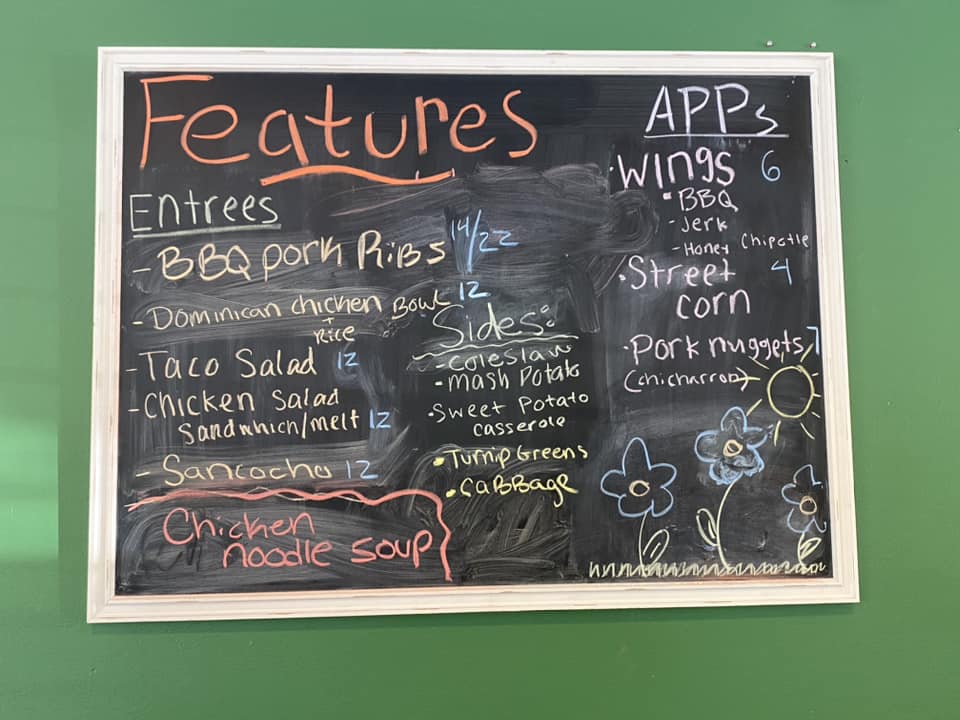 Features
Entrees
- BBQ pork Ribs 14/22
- Dominican chicken Bowl 12
+
Rice
- Taco Salad 12
- Chicken Salad
Sandwhich/melt 12
- Sancocho 12
Chicken
noodle soup
Sides:
- Coleslaw
- Mash Potato
• Sweet Potato
casserole
• Turnip Greens
• Cabbage
APPs
• Wings 6
• BBQ
- Jerk
- Honey Chipotle
• Street 4
corn
• Pork nuggets 7
(chicharron)